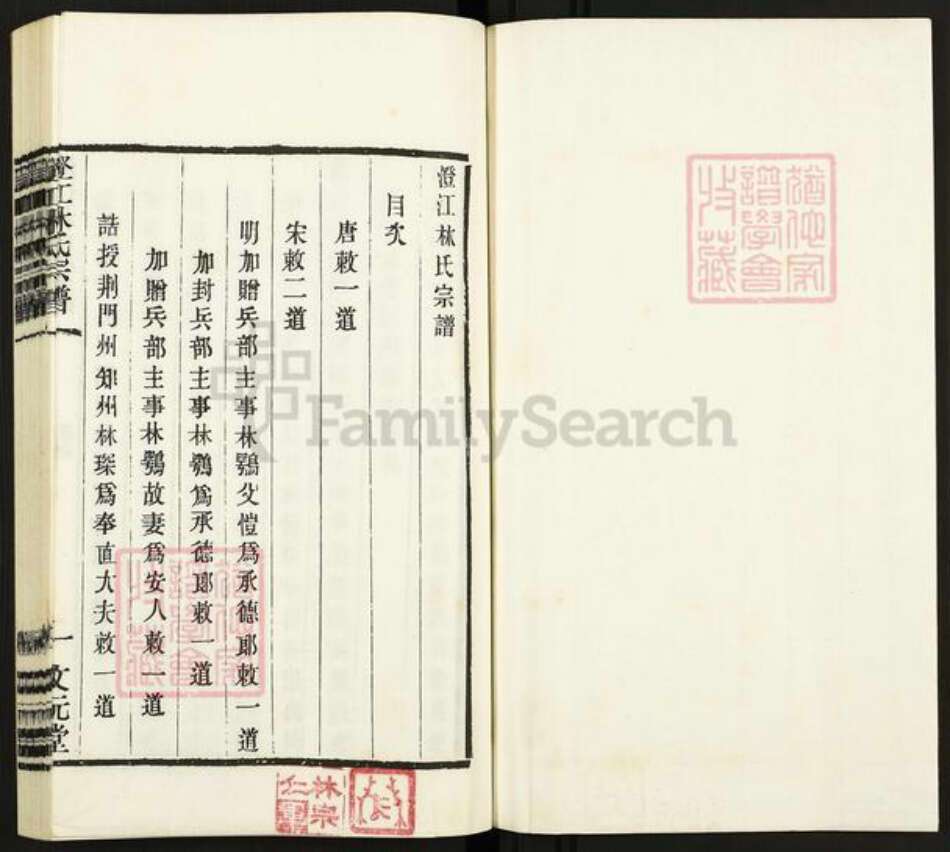 澄江林氏宗譜
目次
唐敕一道
宋敕二道
明加贈兵部主事林鶚父愷爲承德郎敕一道
加封兵部主事林鶚爲承德郎敕一道
加贈兵部主事林鶚故妻爲安人敕一道
誥授荆門州知州林琛爲奉直大夫敕一道
澄江林氏宗譜
一
文元堂
譜學會
收藏
FamilySearch
林宗